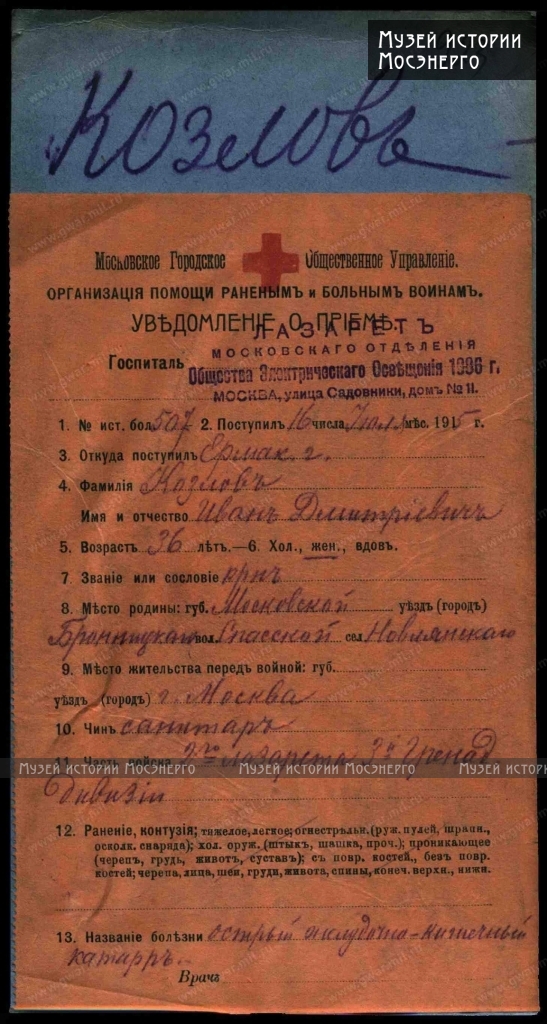 Музей истории
Мосэнерго
Козловъ
Московское Городское Общественное Управленіе.
ОРГАНИЗАЦІЯ ПОМОЩИ РАНЕНЫМЪ и БОЛЬНЫМЪ ВОИНАМЪ.
УВѢДОМЛЕНІЕ О ПРІЕМѢ.
ЛАЗАРЕТЪ
МОСКОВСКАГО ОТДѢЛЕНІЯ
Госпиталь Общества Электрическаго Освѣщенія 1886 г.
МОСКВА, улица Садовники, домъ № 11.
1. № ист. бол. 507 2. Поступилъ 16 числа Іюля мѣс. 1915 г.
3. Откуда поступилъ Ермак. г.
4. Фамилія Козловъ
Имя и отчество Иванъ Дмитріевичъ
5. Возрастъ 36 лѣтъ.—6. Хол., жен., вдовъ.
7. Званіе или сословіе крнъ
8. Мѣсто родины: губ. Московской уѣздъ (городъ)
Бронницкаго вол. Спасской сел. Новлянскаго
9. Мѣсто жительства передъ войной: губ.
уѣздъ (городъ) г. Москва
10. Чинъ санитаръ
11. Часть войска 2го лазарета 3й Гренад
Музей истории Мосэнерго Музей истории Мосэнерго Музей истор
дивизіи
12. Раненіе, контузія; тяжелое, легкое; огнестрѣльн. (руж. пулей, шрапн.,
осколк. снаряда); хол. оруж. (штыкъ, шашка, проч.); проникающее
(черепъ, грудь, животъ, суставъ); съ повр. костей., безъ повр.
костей; черепа, лица, шеи, груди, живота, спины, конеч. верхн., нижн.
13. Названіе болѣзни острый желудочно-кишечный
катарръ.
Врачъ
www.gwar.mil.ru